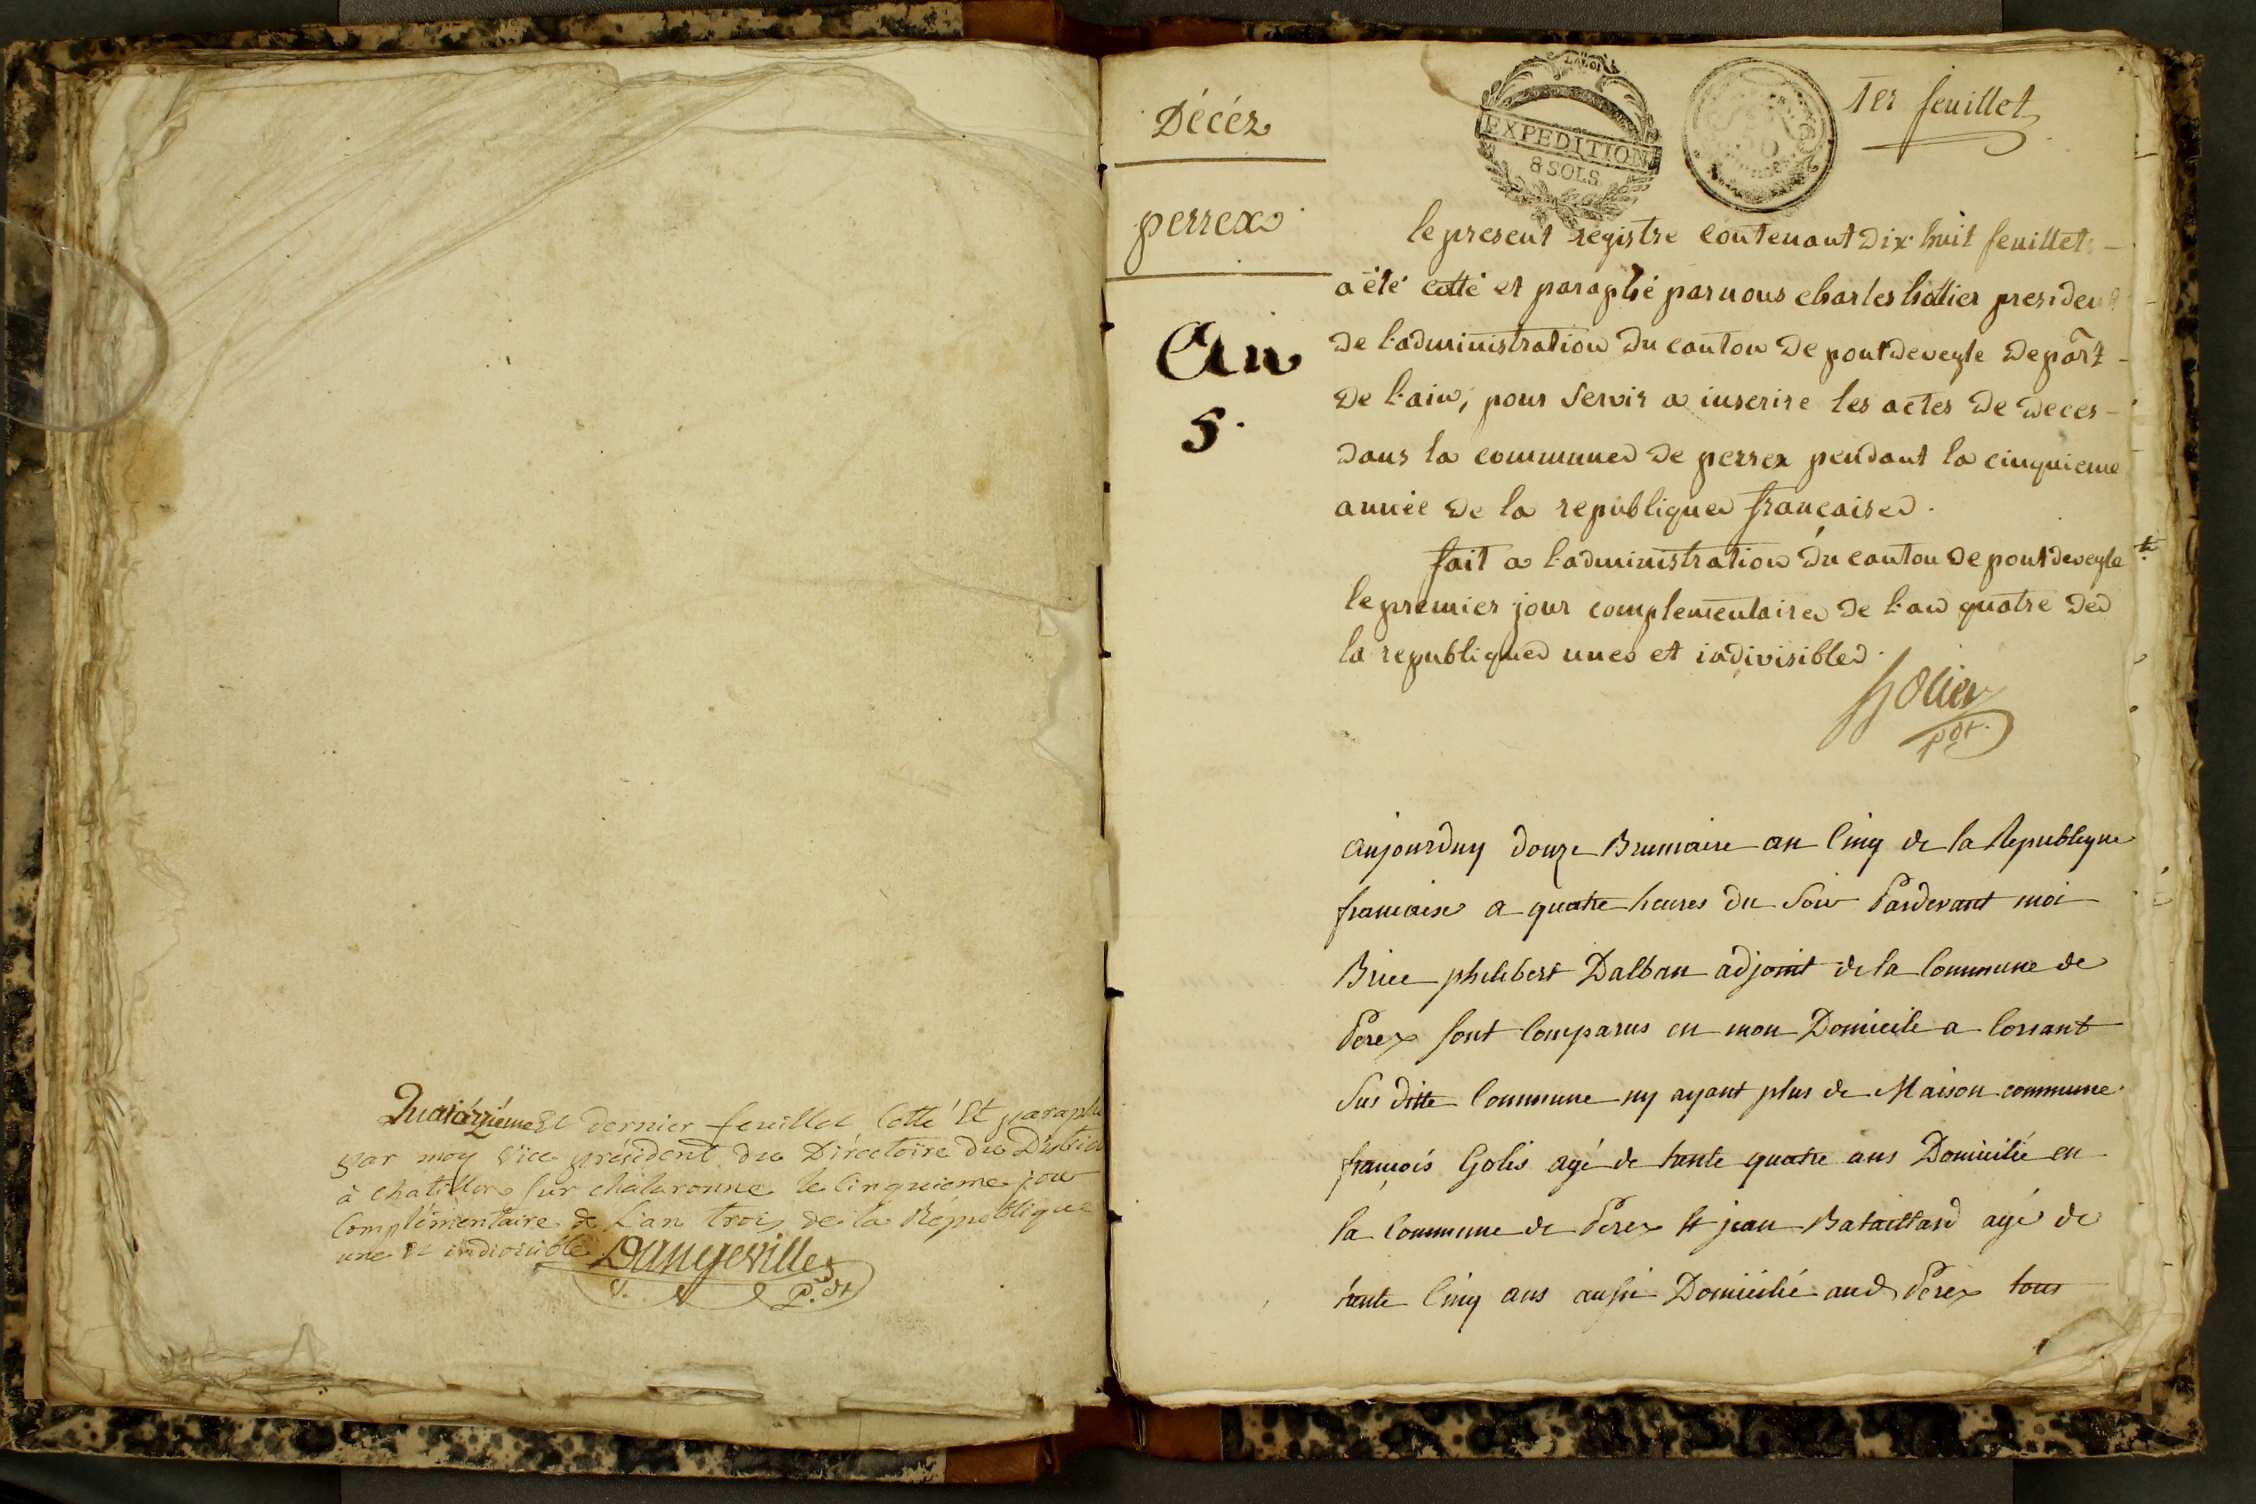 Quatorzieme Et dernier feuillet Cotté Et paraphé
par moy Vice président du Diréctoire du District
à Chatillon sur chalaronne le Cinquieme jour
Complémentaire de L'an trois de la République
une Et indivisible Dangeville
v. P.dt
Décéz
perrex
An
5.
LA LOI
EXPEDITION
8 SOLS
1er feuillet
le present registre contenant dix huit feuillets
a été cotté et paraphé par nous charles hottier president
de l'administration du canton de pontdeveyle depart.t
de l'ain, pour servir a inscrire les actes de deces
dans la commune de perrex pendant la cinquieme
année de la republique française.
fait a l'administration du canton de pontdeveyle
le premier jour complementaire de l'an quatre de
la republique une et indivisible.
pdt.
aujourduy douze Brumaire an Cinq de la Republique
francaise a quatre heures du Soir Pardevant moi
Brice philibert Dalban adjoint de la Commune de
Perex sont Comparus en mon Domicile a Corsant
Sus ditte Commune ny ayant plus de Maison commune
françois Golis agé de trente quatre ans Domicilié en
la Commune de Perex Et jean Bataillard agé de
trente Cinq ans aussi Domicilié aud Perex tous